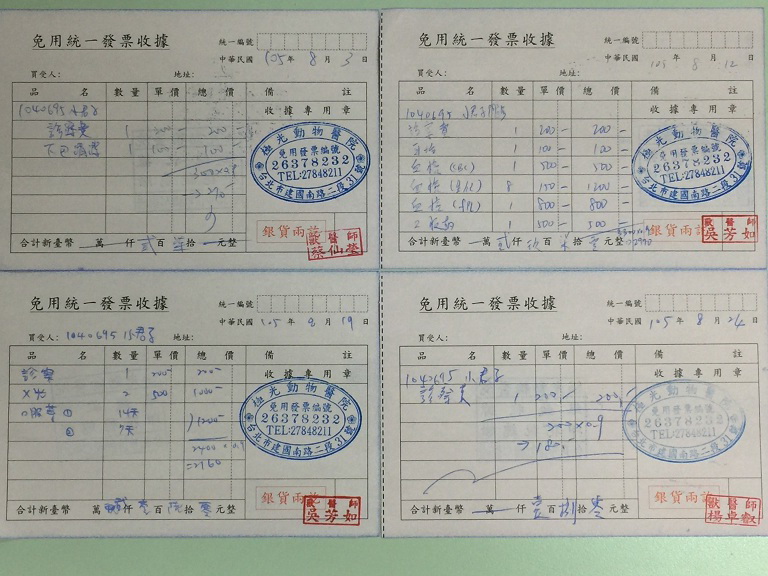 免用統一發票收據
統一編號
中華民國 105 年 8 月 3 日
買受人: 地址:
品 名 數量 單價 總價 備 註
收據專用章
1040695 小君子
診察費 1 200- 200-
1 100- 100-
300×0.9
極光動物醫院
免用發票編號
26378232
TEL:27848211
台北市建國南路二段31號
銀貨兩訖
獸醫師
蔡仙瑩
合計新臺幣 萬 仟 貳 百 拾 元整
免用統一發票收據
統一編號
中華民國 105 年 8 月 12 日
買受人: 地址:
品 名 數量 單價 總價 備 註
收據專用章
1040695 小君子
1 200- 200-
1 100- 100-
血檢 (CBC) 1 500- 500-
血檢 8 150 1200-
血檢 1 800- 800-
1 500- 500-
極光動物醫院
免用發票編號
26378232
TEL:27848211
台北市建國南路二段31號
銀貨兩訖
獸醫師
吳芳如
合計新臺幣 萬 貳 仟 玖 百 拾 元整
免用統一發票收據
統一編號
中華民國 105 年 8 月 19 日
買受人: 1040695 小君子 地址:
品 名 數量 單價 總價 備 註
收據專用章
診察 1 200- 200-
X光 2 500 1000-
口服藥 ① 14天
② 7天
1200-
2400×0.9
=2160
極光動物醫院
免用發票編號
26378232
TEL:27848211
台北市建國南路二段31號
銀貨兩訖
獸醫師
吳芳如
合計新臺幣 萬 仟 壹 百 拾 零 元整
免用統一發票收據
統一編號
中華民國 105 年 8 月 24 日
買受人: 地址:
品 名 數量 單價 總價 備 註
收據專用章
1040695 小君子
診察費 1 200- 200-
200×0.9
→180.
極光動物醫院
免用發票編號
26378232
TEL:27848211
台北市建國南路二段31號
銀貨兩訖
獸醫師
楊卓叡
合計新臺幣 萬 仟 壹 百 捌 拾 零 元整